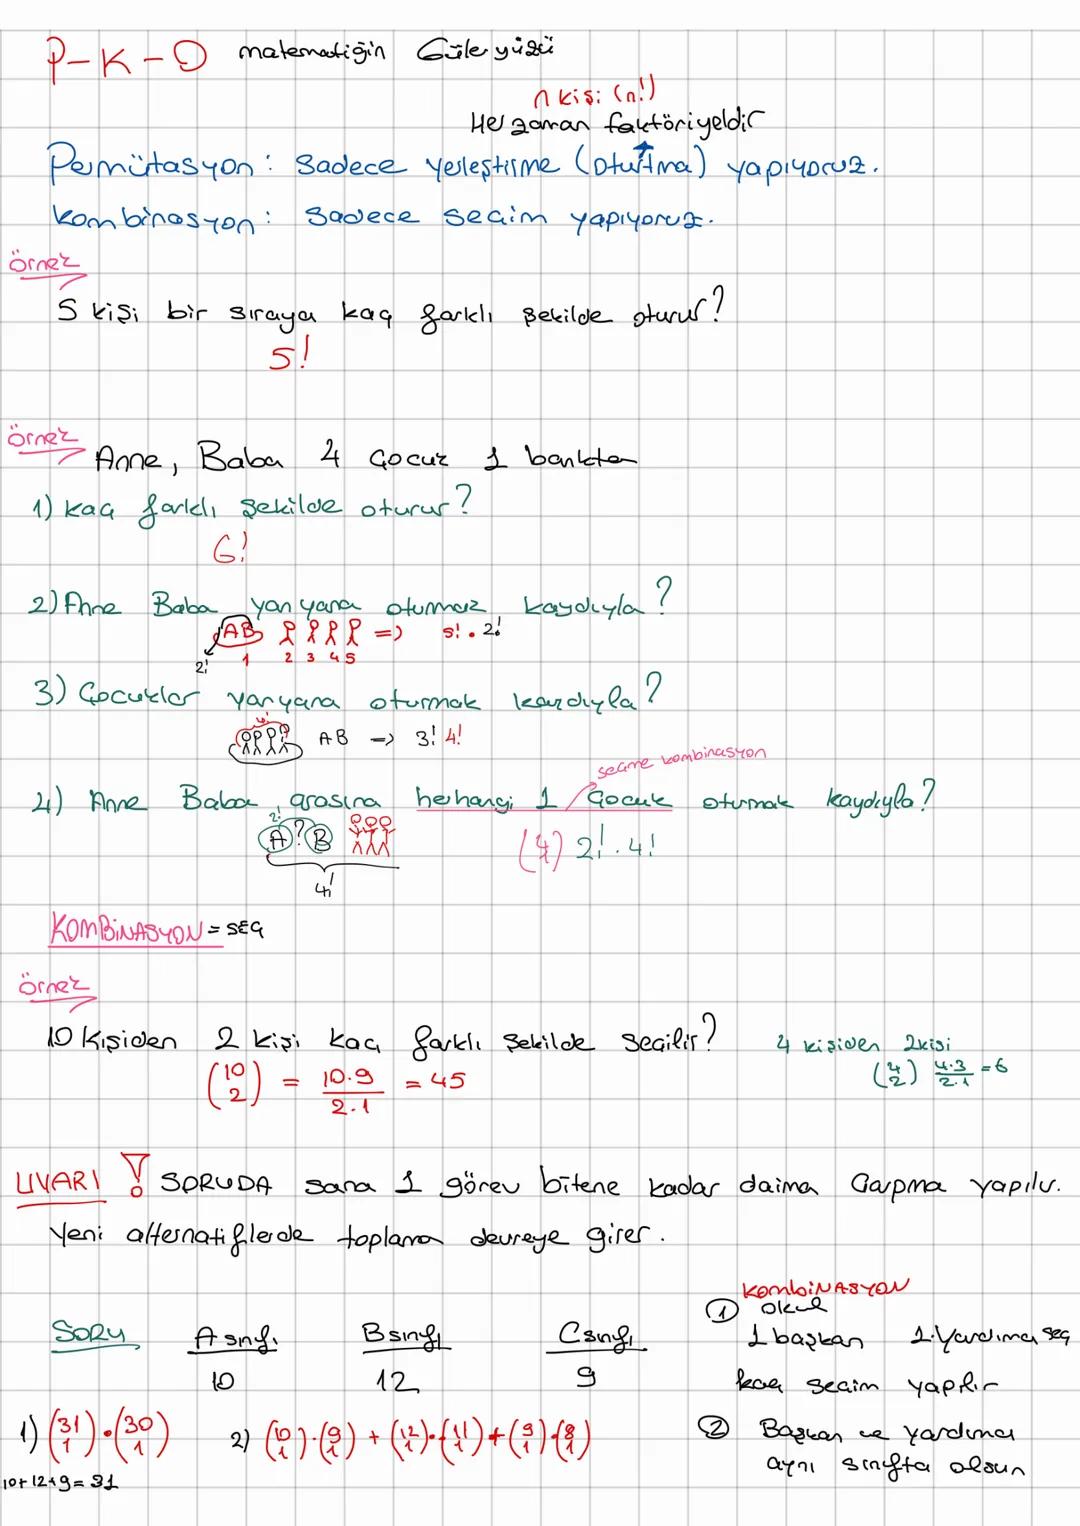 P-K-O matematiğin Güler yüzü
n kişi (n!)
Her zaman faktöriyeldir
Permütasyon: Sadece yerleştirme (oturtma) yapıyoruz.
Kombinasyon: Sadece seçim yapıyoruz.
Örnek
5 kişi bir sıraya kaç farklı şekilde oturur?
5!
Örnek
Anne, Baba 4 Çocuk 1 bankta
1) kaç farklı şekilde oturur?
6!
2) Anne Baba yanyana oturmak kaydıyla?
AB => 5! . 2!
2! 1 2 3 4 5
3) Çocuklar yanyana oturmak kaydıyla?
4! AB => 3! 4!
seçme kombinasyon
4) Anne Baba arasına herhangi 1 Çocuk oturmak kaydıyla?
2! A ? B (4 1) 2! . 4!
4!
KOMBİNASYON = SEÇ
Örnek
10 Kişiden 2 kişi kaç farklı şekilde seçilir? 4 kişiden 2 kişi
(10 2) = 10.9 / 2.1 = 45 (4 2) 4.3 / 2.1 = 6
UYARI ! SORUDA sana 1 görev bitene kadar daima Çarpma yapılır.
Yeni alternatiflerde toplama devreye girer.
SORU A sınıfı B sınıfı C sınıfı
10 12 9
1) (31 1) . (30 1) 2) (10 1) . (9 1) + (12 1) . (11 1) + (9 1) . (8 1)
10+12+9=31
KOMBİNASYON
① okul
1 başkan 1. Yardımcı seç
kaç seçim yapılır
② Başkan ve yardımcı
aynı sınıfta olsun